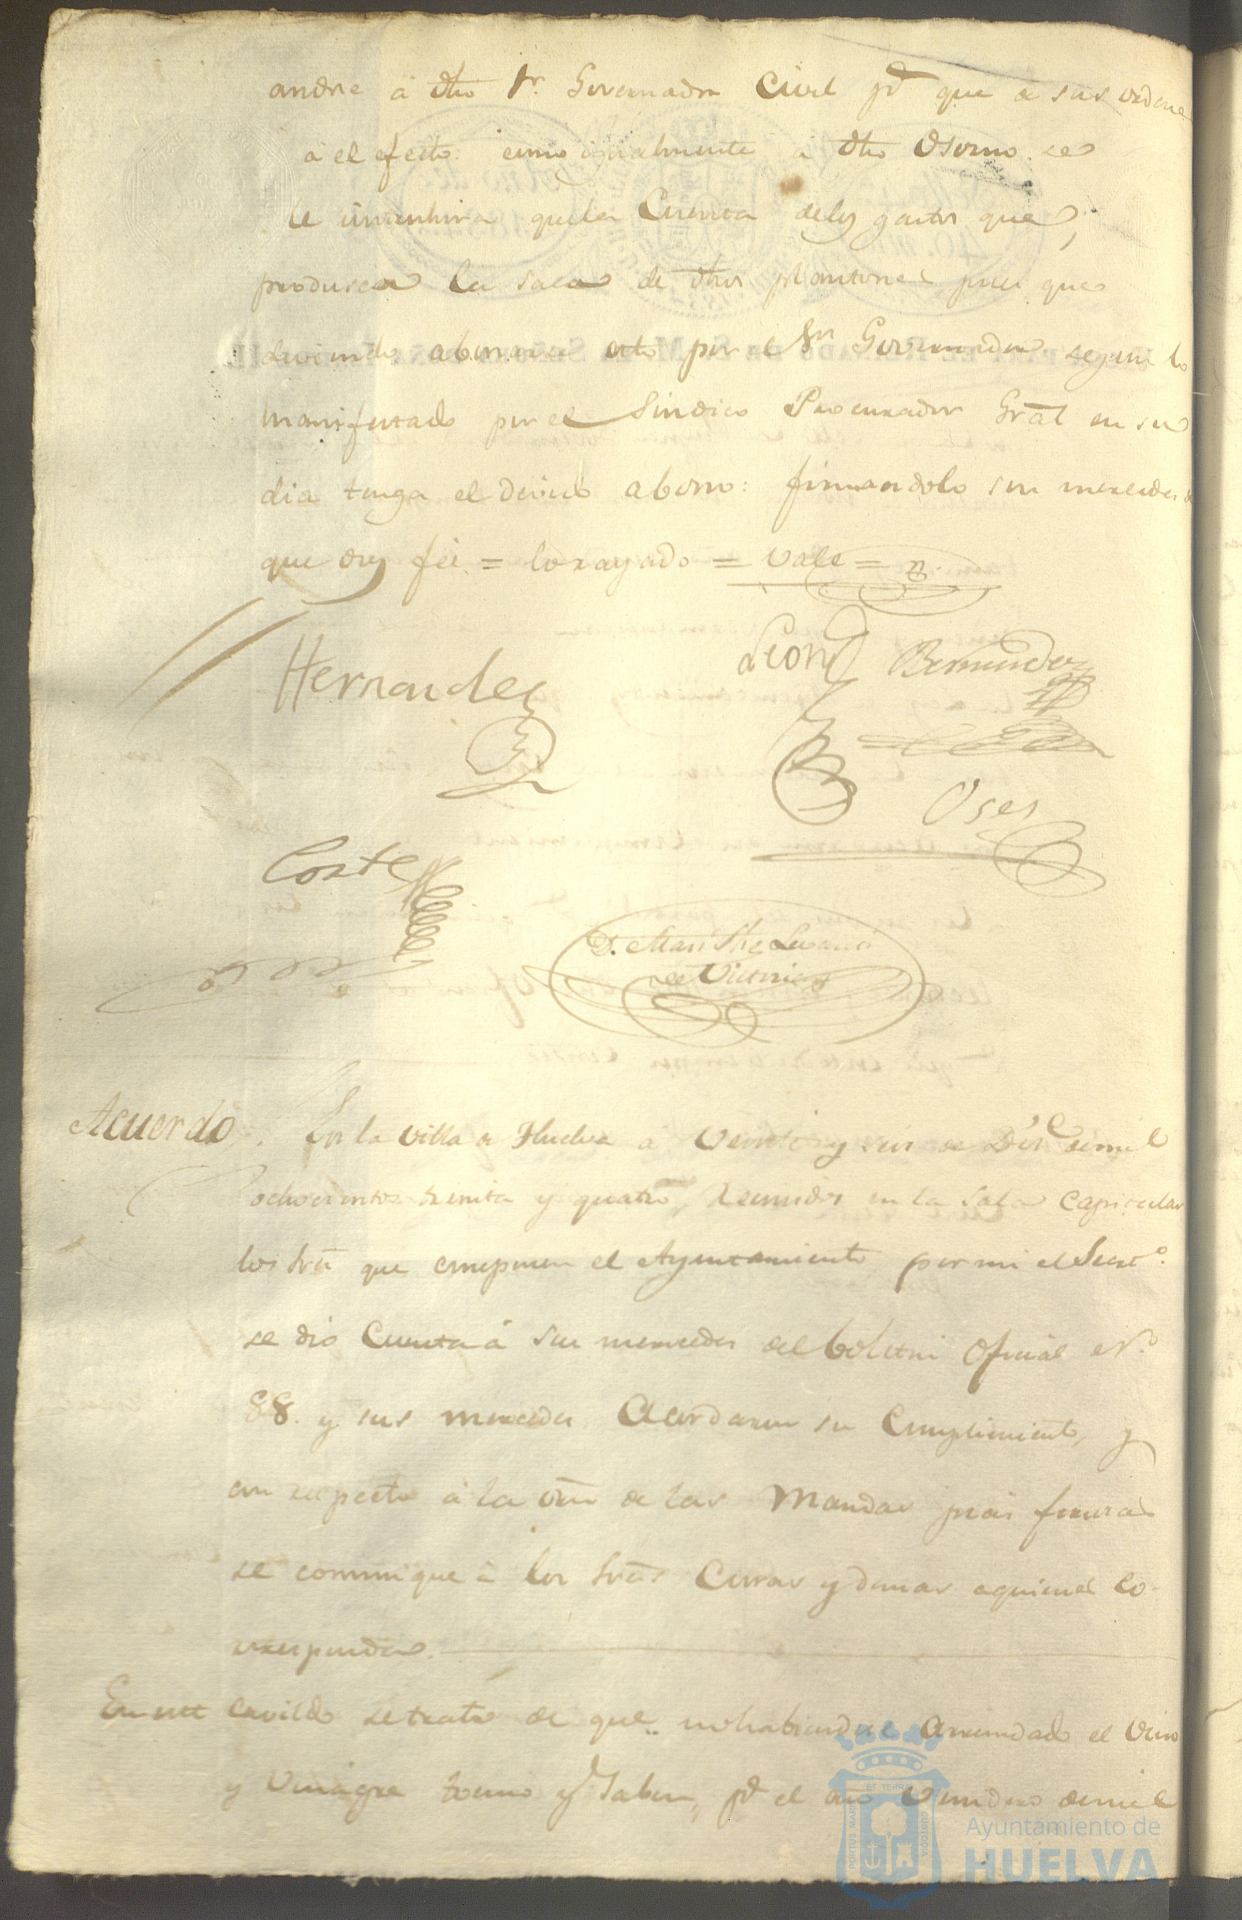 andre á dho Sr. Governador Civil pª que a sus ordene
á el efecto: como igualmente á dho Osorno se
le que la Cuenta delos gastos que
produsca la saca de dhos plantones pues que
deviendo abonarse esto por el Sor Governador segun lo
manifestado por el Sindico Procurador Gral en su
dia tenga el devido abono: firmandolo sus mercedes de
que doy feé = lo rayado = vale =
Hernandez
Leon
Bermudez
Oses
Corte
D. Mari
de Victoria
Acuerdo. En la villa de Huelva á veinte y seis de Dize. de mil
ochocientos treinta y quatro, Reunidos en la Sala Capitular
los Sres que componen el Ayuntamiento por mi el Secretº.
se dio Cuenta á sus mercedes del boletin Oficial Nº.
88. y sus mercedes Acordaron su Cumplimiento, y
con respecto á la orn de las Mandas pias forzosas
se comunique á los Sres Curas y demas a quienes co-
rresponda.
En este cavildo se trato de que no habiendose Arrendado el vino
y Vinagre tocino y Jabon, pª el año venidero de mil
ET TERRAE
PORTUS MARIS
CUSTODIA
Ayuntamiento de
HUELVA